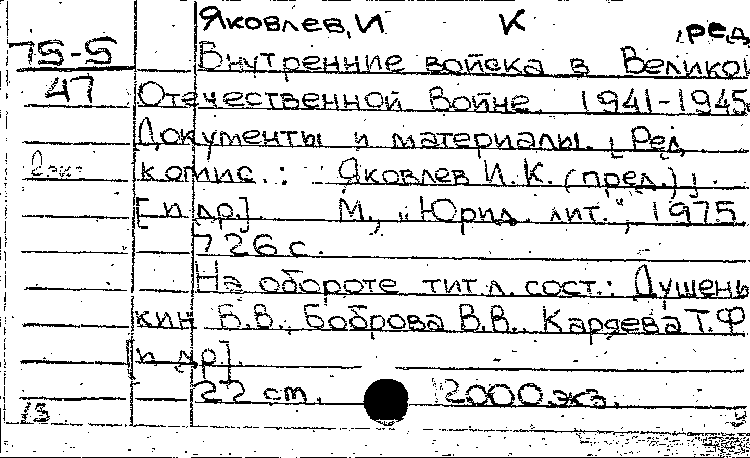 Яковлев, И К , ред
75-5 Внутренние войска в Великой
47 Отечественной Войне 1941-1945
Документы и материалы. [Ред.
2 экз комис.: Яковлев И.К. (пред.)]
[и др]. М., „Юрид. лит.", 1975
726 с.
На обороте тит л. сост.: Душень
кин В.В., Боброва В.В., Каряева Т.Ф
[и др].
22 см. 12000 экз.